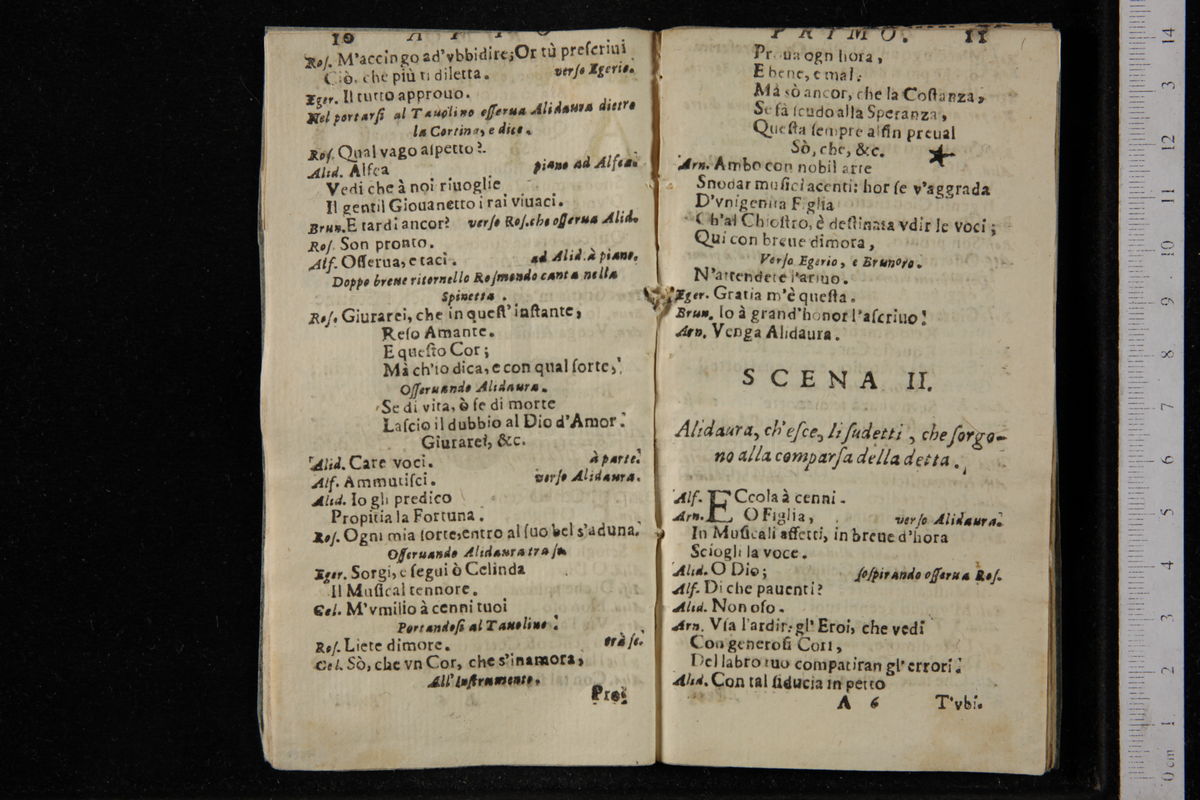 10 ATTO
Ros. M'accingo ad'vbbidire; Or tù prescriui
Ciò, che più ti diletta. verso Egerio.
Eger. Il tutto approuo.
Nel portarsi al Tauolino osserua Alidaura dietro
la Cortina, e dice.
Ros. Qual vago aspetto?
Alid. Alfea piano ad Alfea.
Vedi che à noi riuoglie
Il gentil Giouanetto i rai viuaci.
Brun. E tardi ancor? verso Ros. che osserua Alid.
Ros. Son pronto.
Alf. Osserua, e taci. ad Alid. à piano.
Doppo breue ritornello Rosmondo canta nella
Spinetta.
Ros. Giurarei, che in quest' instante,
Reso Amante.
E questo Cor;
Mà ch'io dica, e con qual sorte,
Osseruando Alidaura.
Se di vita, ò se di morte
Lascio il dubbio al Dio d'Amor.
Giurarei, &c.
Alid. Care voci. à parte.
Alf. Ammutisci. verso Alidaura.
Alid. Io gli predico
Propitia la Fortuna.
Ros. Ogni mia sorte, entro al suo bel s'aduna.
Osseruando Alidaura tra se
Eger. Sorgi, e segui ò Celinda
Il Musical tennore.
Cel. M'vmilio à cenni tuoi
Portandosi al Tauolino.
Ros. Liete dimore. trà se.
Cel. Sò, che vn Cor, che s'inamora,
All' Instrumento.
Pro-
PRIMO. 11
Proua ogn hora,
E bene, e mal.
Mà sò ancor, che la Costanza,
Se fà scudo alla Speranza,
Questa sempre alfin preual
Sò, che, &c.
Arn. Ambo con nobil arte
Snodar musici acenti: hor se v'aggrada
D'vnigenita Figlia
Ch'al Chiostro, è destinata vdir le voci;
Qui con breue dimora,
Verso Egerio, e Brunoro.
N'attendete l'ariuo.
Eger. Gratia m'è questa.
Brun. Io à grand'honor l'ascriuo!
Arn. Venga Alidaura.
SCENA II.
Alidaura, ch'esce, li sudetti, che sorgo-
no alla comparsa della detta.
Alf. ECcola à cenni.
Arn. O Figlia, verso Alidaura.
In Musicali affetti, in breue d'hora
Sciogli la voce.
Alid. O Dio; sospirando osserua Ros.
Alf. Di che pauenti?
Alid. Non oso.
Arn. Vsa l'ardir: gl' Eroi, che vedi
Con generosi Cori,
Del labro tuo compatiran gl' errori.
Alid. Con tal fiducia in petto
A 6 T'vbi-
0 cm 1 2 3 4 5 6 7 8 9 10 11 12 3 14